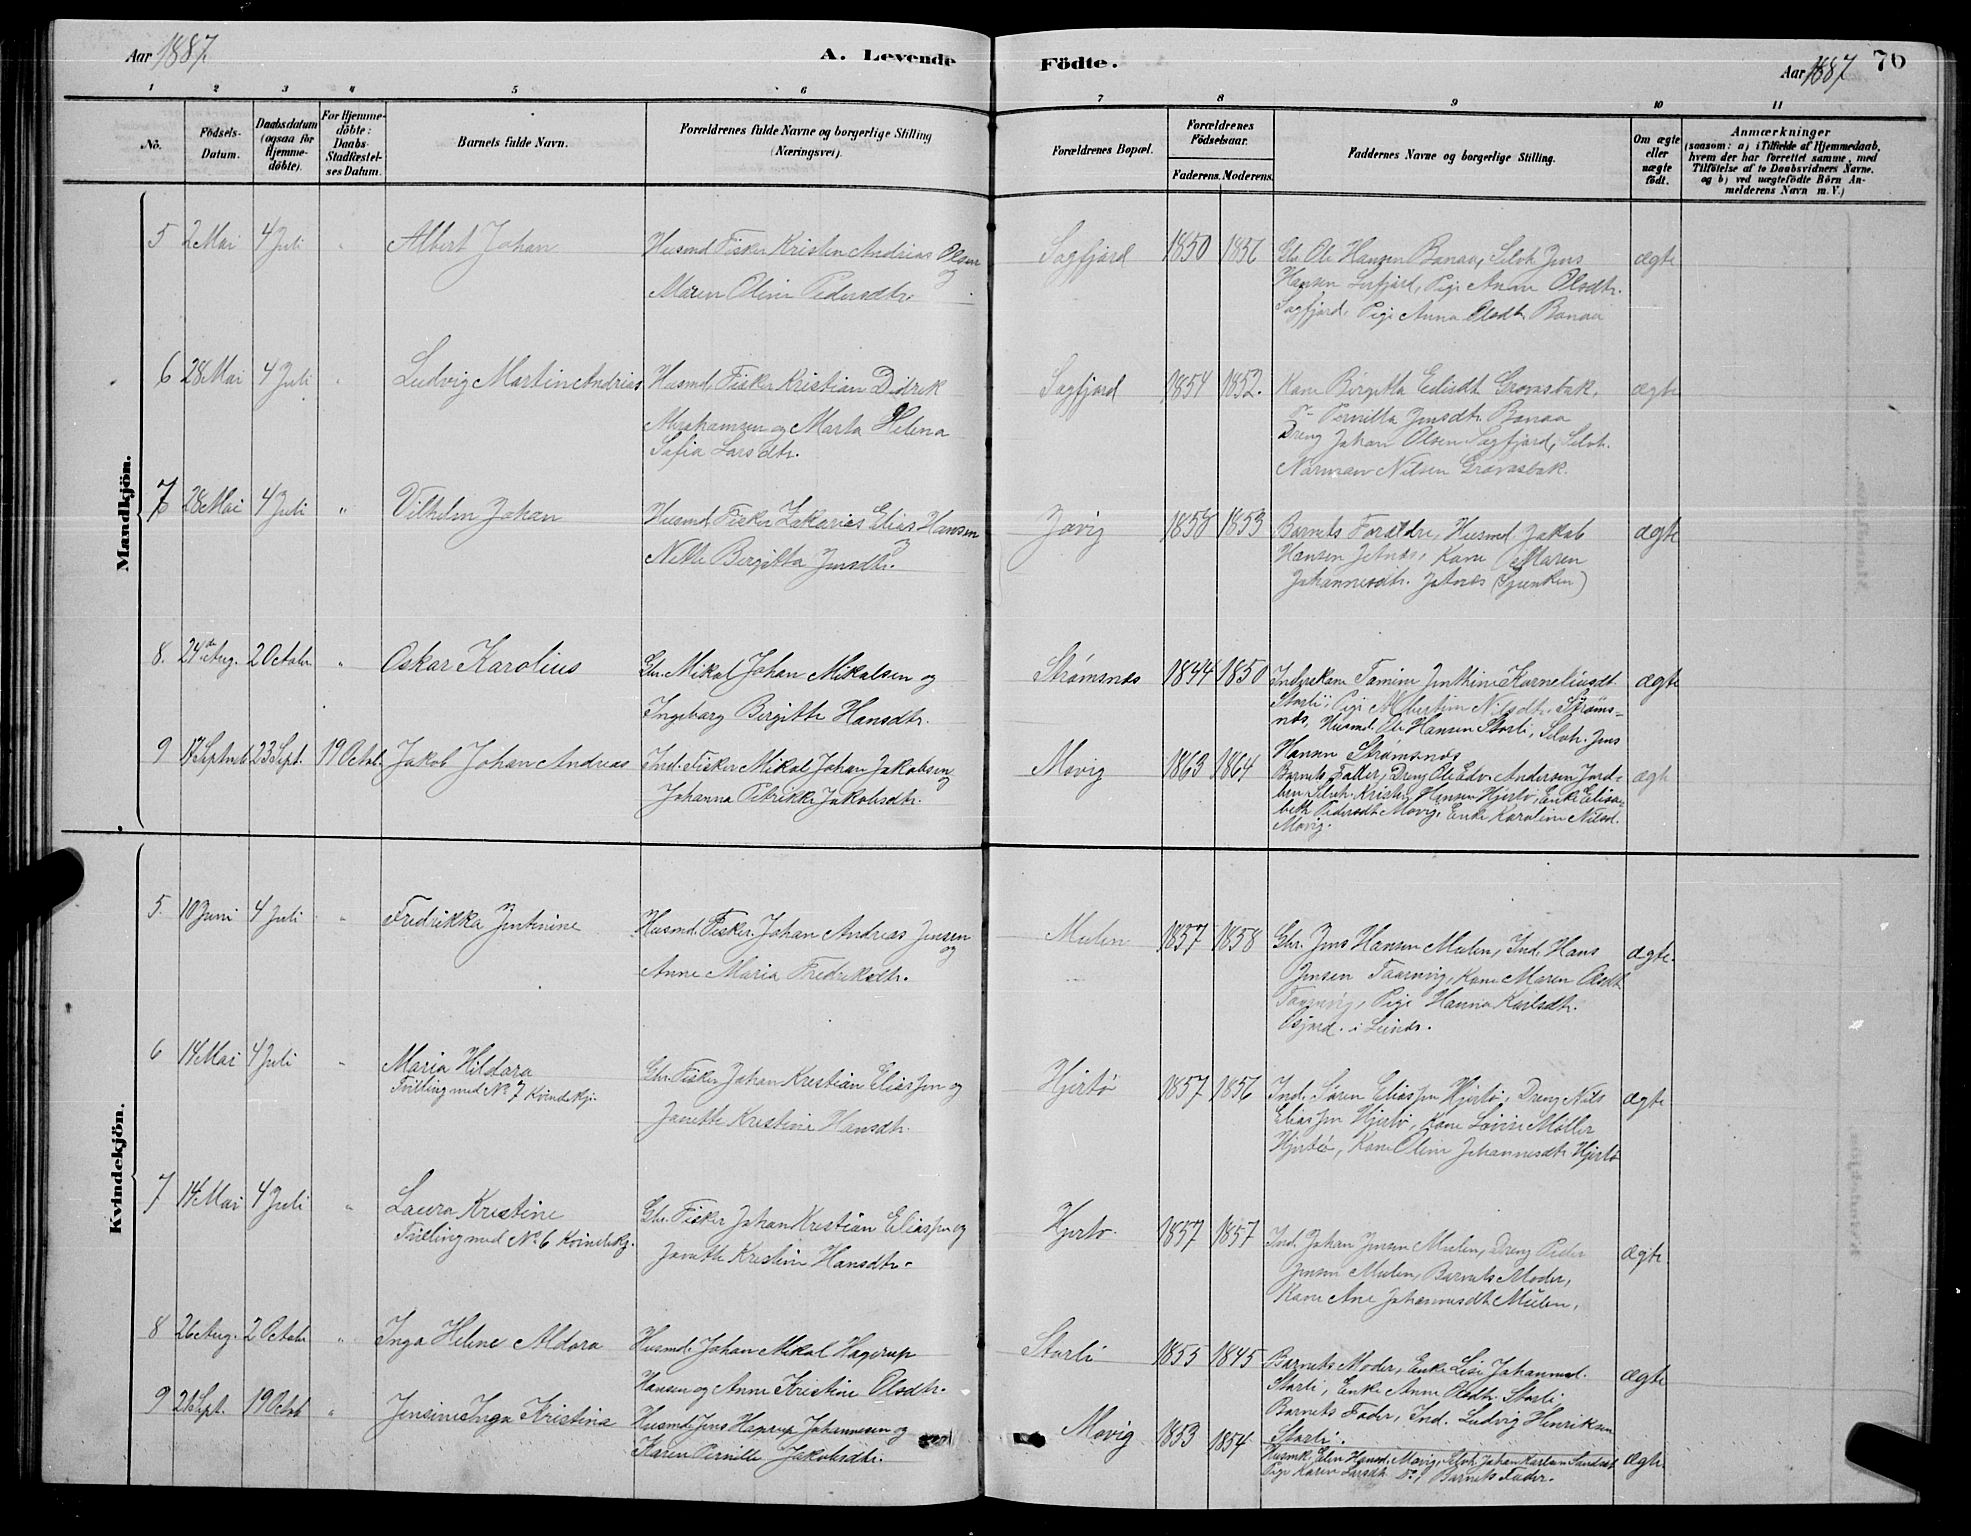 Aar 1887
A. Levende
Födte.
Aar 1887
76
1 2 3 4 5 6 7 8 9 10 11
No.
Födsels-
Datum.
Daabsdatum
(ogsaa for
Hjemme-
döbte).
For Hjemme-
döbte:
Daabs-
Stadfæstel-
ses Datum.
Barnets fulde Navn.
Forældrenes fulde Navne og borgerlige Stilling
(Næringsvei).
Forældrenes Bopæl.
Forældrenes
Födselsaar.
Faderens. Moderens.
Faddernes Navne og borgerlige Stilling.
Om ægte
eller
uægte
födt.
Anmærkninger
(saasom: a) i Tilfælde af Hjemmedaab,
hvem der har forrettet samme, med
Tilföielse af to Daabsvidners Navne.
og b) ved uægtefödte Börn An-
melderens Navn m. V.)
Mandkjön.
5 2 Mai 4 Juli " Albert Johan Husmd. Fisker Kristen Andrias Olsen Sagfjord 1850 1856 Gbr. Ole Hansen Bonaa, Selvh. Jens ægte
og
Maren Oline Pedersdtr.
Hansen Sagfjord, Pige Anne Olsdtr.
Sagfjord, Pige Anna Olsdt. Bonaa
6 28 Mai 4 Juli " Ludvig Martin Andrias Husmd. Fisker Kristian Didrik Sagfjord 1854 1852. Kone Birgitta ægte
Abrahamsen og Marta Helena
Sofia Larsdtr.
Pernilla Jensdtr. Bonaa
Dreng Johan Olsen Sagfjord, Selvh.
Normann Nilsen
7 28 Mai 4 Juli " Vilhelm Johan Husmd. Fisker Zakarias Elias Hansen 1853 Barnets Forældre, Husmd. Jakob ægte
og
Nette Birgitta Jensdtr.
Hansen Kone Maren
Johannesdtr.
8. 24de Aug. 2 Octobr. " Oskar Karolius Gbr. Mikal Johan Mikalsen og Strømsnes 1844 1850 Korneliusdt. ægte
Ingeborg Birgitte Hansdtr.
Storli, Pige Albertine Nilsdtr. Strøms-
nes, Husmd. Ole Hansen Storli, Selvh. Jens
Hansen Strømsnes
9 17 Septmb 23 Sept. 19 Octob. Jakob Johan Andreas Ind. Fisker Mikal Johan Jakobsen Movig 1863 1864 Barnets Fader, Dreng Ole Edv. Andersen ægt
og
Johanna Petrikke Jakobsdtr.
Selvh. Kristen Hansen Hjertø, Enke Elisa-
beth Pedersdt. Movig, Enke Karoline Nilsd.
Movig.
Kvindekjön.
5. 10 Juni 4 Juli " Fredrikka Jentinine Husmd. Fisker Johan Andreas Jensen Mulen 1857 1858 Gbr. Jens Hansen Mulen, Ind. Hans ægte.
og
Anne Maria Fredriksdtr.
Jensen Taarnvig, Kone Maren Olsdt.
Taarnvig, Pige Hanna Karlsdtr.
6 14 Mai 4 Juli " Maria Hildora Gbr. Fisker Johan Kristian Eliassen og Hjertø 1857 1856 Ind. Søren Eliassen Hjertø, Dreng Nils ægte
Tvilling med No 7 Kvindekj.
Janette Kristine Hansdtr.
Eliassen Hjertø, Kone Lovise Møller
Hjertø, Kone Oline Johannesdtr. Hjertø
7 14 Mai 4 Juli " Laura Kristine Gbr. Fisker Johan Kristian Eliassen og Hjertø. 1857 1857 Ind. Johan Jensen Mulen, Dreng Peder ægte
Tvilling med No 6 Kvindekj.
Janette Kristine Hansdtr.
Jensen Mulen, Barnets Moder,
Kone Ane Johannesdt. Mulen.
8 26 Aug. 2 Octobr " Inga Helene Aldora Husmd. Johan Mikal Hagerup Storli 1855 1845 Barnets Moder, Enke Lise Johannesd. ægte
Hansen og Anne Kristine Olsdtr.
Storli, Enke Anne Olsdtr. Storli
Barnets Fader, Ind. Ludvig Henriksen
Storli.
9 21 Sept. 19 Octob " Jensine Inga Kristina Husmd. Jens Hagerup Johannesen og Movig 1853 1854 Husmk. Elen Hansd. Movig, Selvh. Johan Karlsen ægte
Karen Pernille Jakobsdtr.
Pige Karen Larsdt. Do, Barnets Fader.